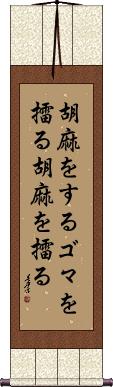 胡麻をするゴマを
擂る胡麻を擂る